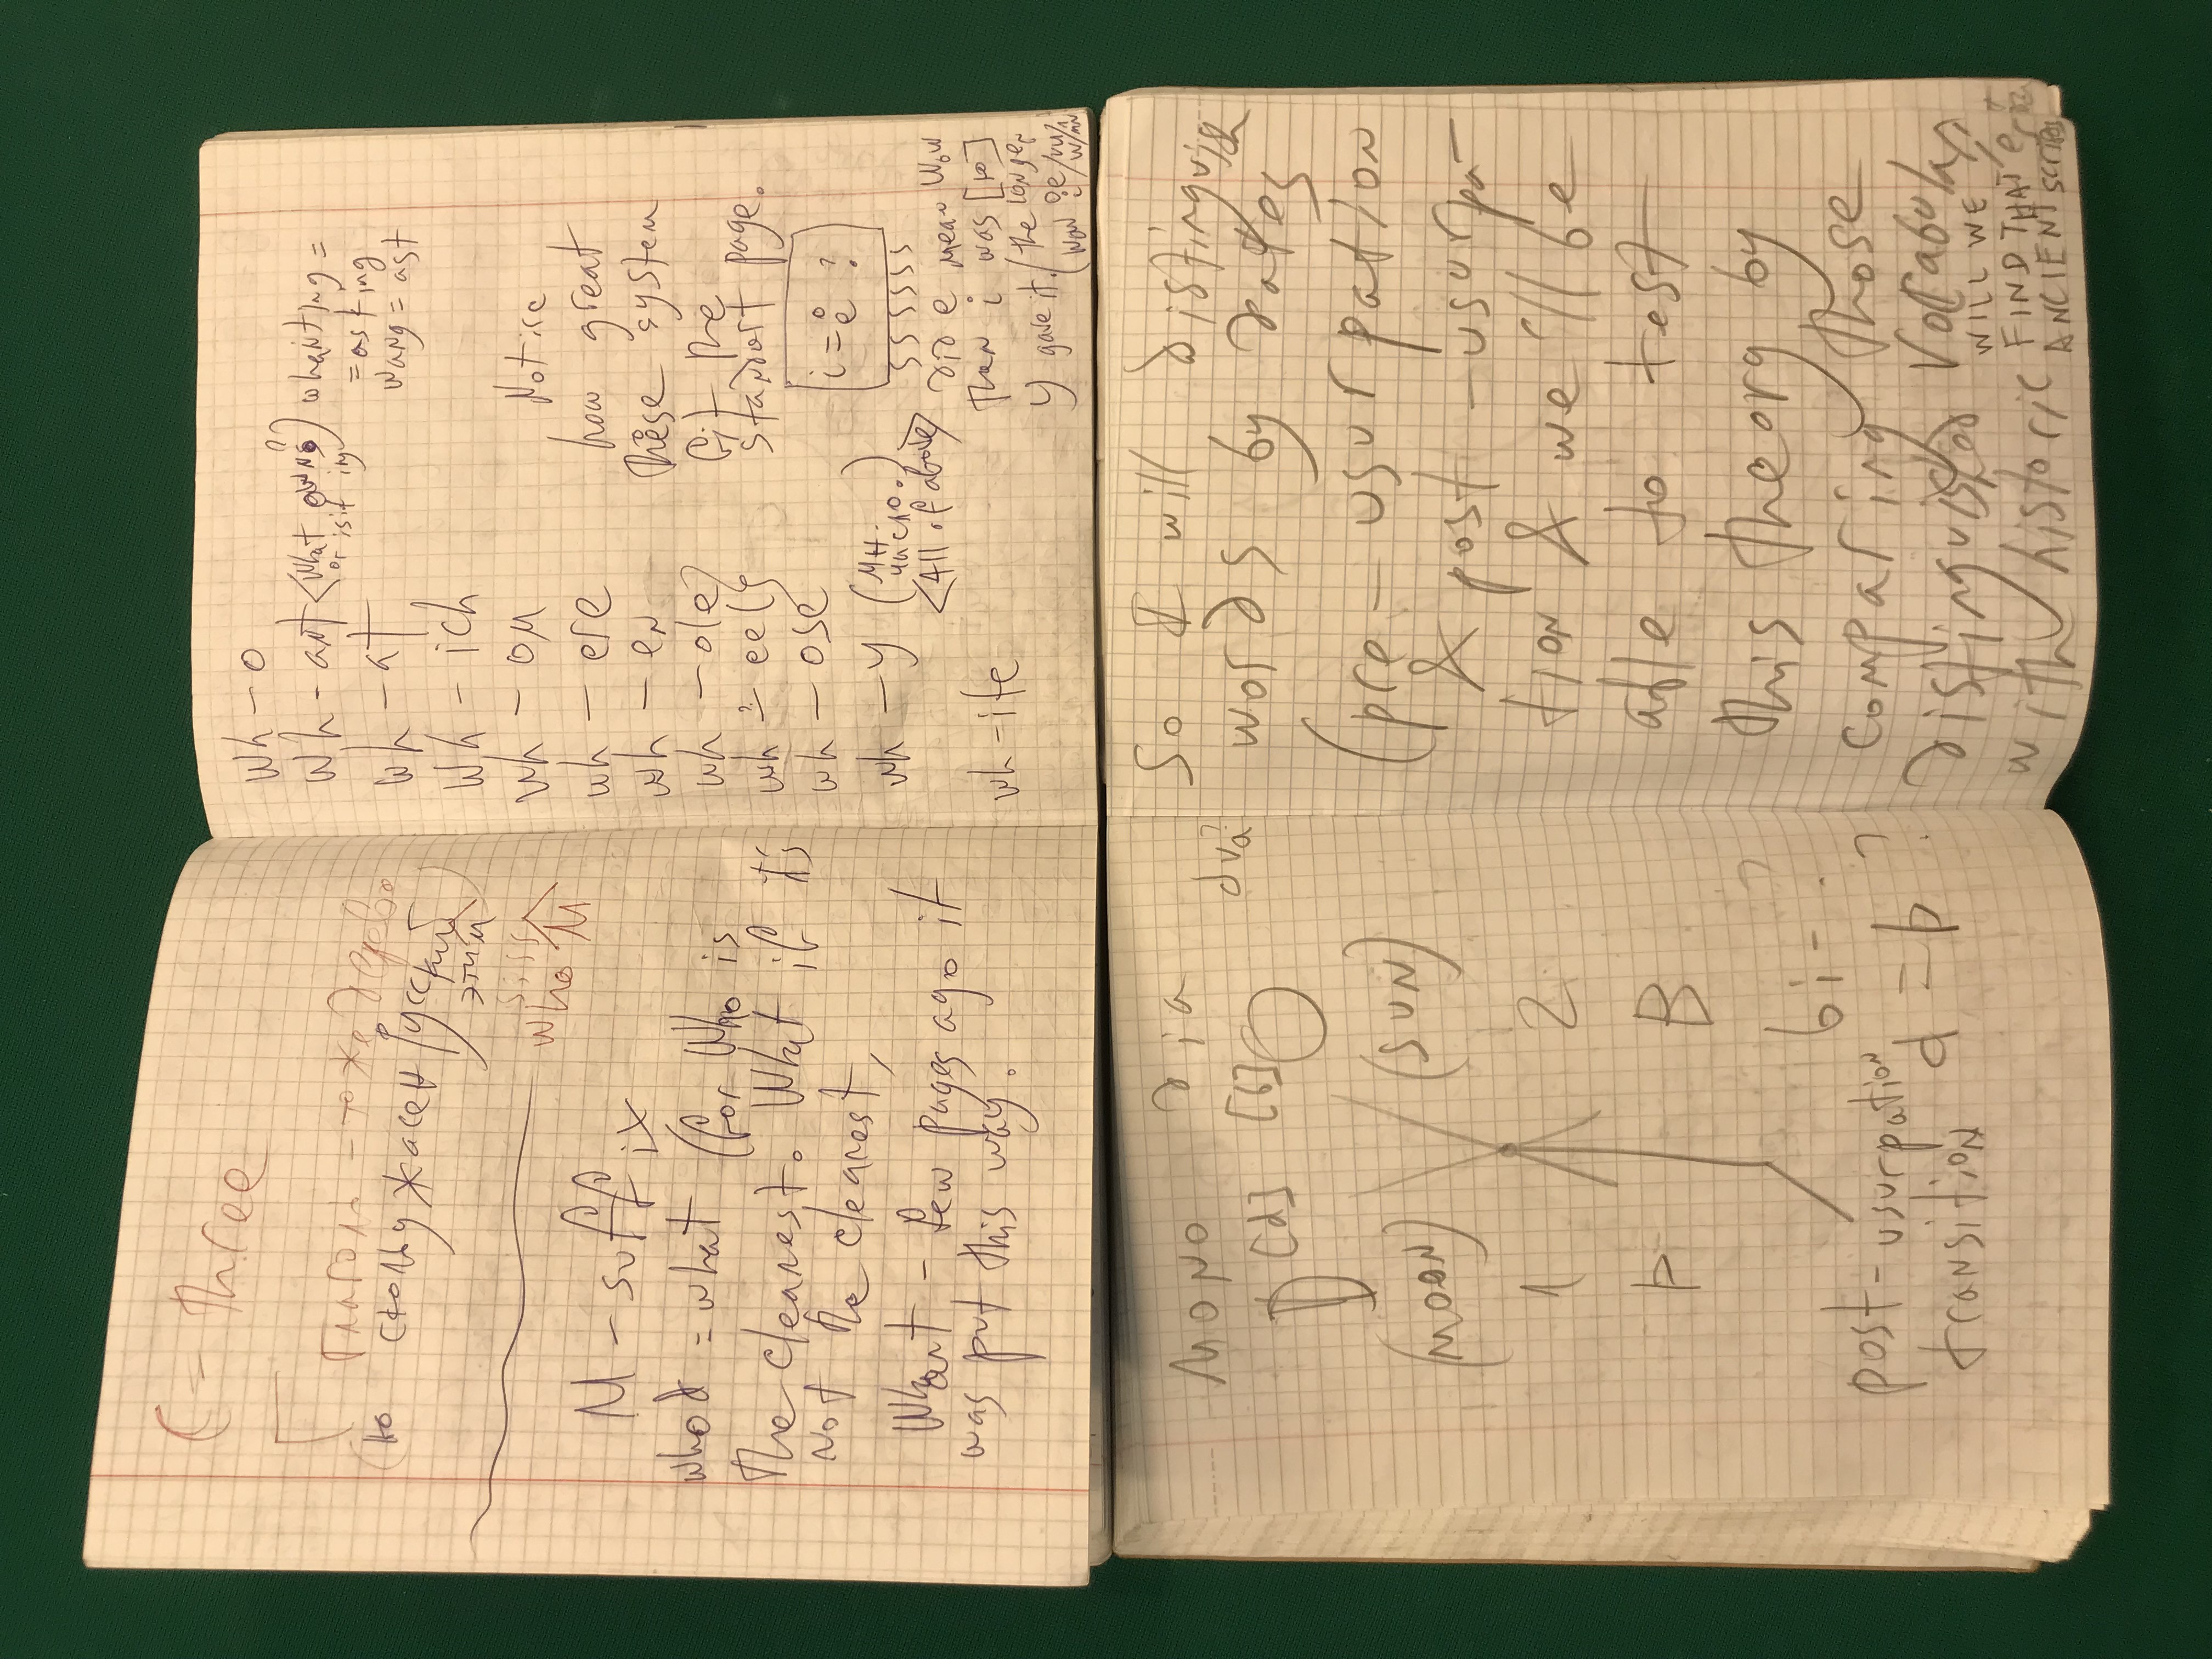 C - Three
Глаголь - то же дерево
(но сколь ужасен русский
этим)
siss
who M
M - suffix
whod = what (for Who is
the clearest. What if it's
not the clearest,
Whant - few pages ago it
was put this way.
Wh - o
Wh - ant <What owns?) whanting =
or is it ing = asking
wh - at wang = ast
Wh - ich
wh - om Notice
wh - ere how great
wh - en these system
wh - ole} fit the
wh - eel} standort page.
?
wh - ose
i = e ?
wh - y (мн. число.)
<All of above>
ssssss
did e mean wow
wh - ite
than i was [io]
y gave it. (the longer
wow
mono dia
dva?
[d] [b]
(moon) (sun)
1 2
B
bi - ?
post-usurpation
transition d = b ?
So I will distinguish
words by dates
(pre - usurpation
& post - usurpa-
tion & we'll be
able to test
this theory by
comparing those
distinguished vocabulari
with historic
WILL WE
FIND THAT
ANCIENT scripts